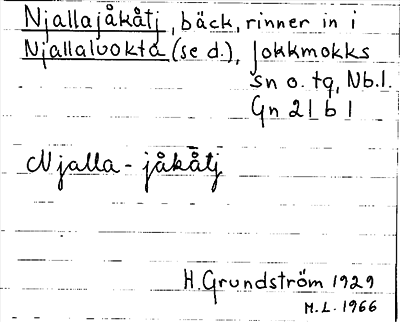 Njallajåkåtj, bäck, rinner in i
Njallaluokta (se d.), Jokkmokks
sn o. tg, Nb.l.
Gn 21 b 1
Njalla-jåkåtj
H. Grundström 1929
M.L. 1966